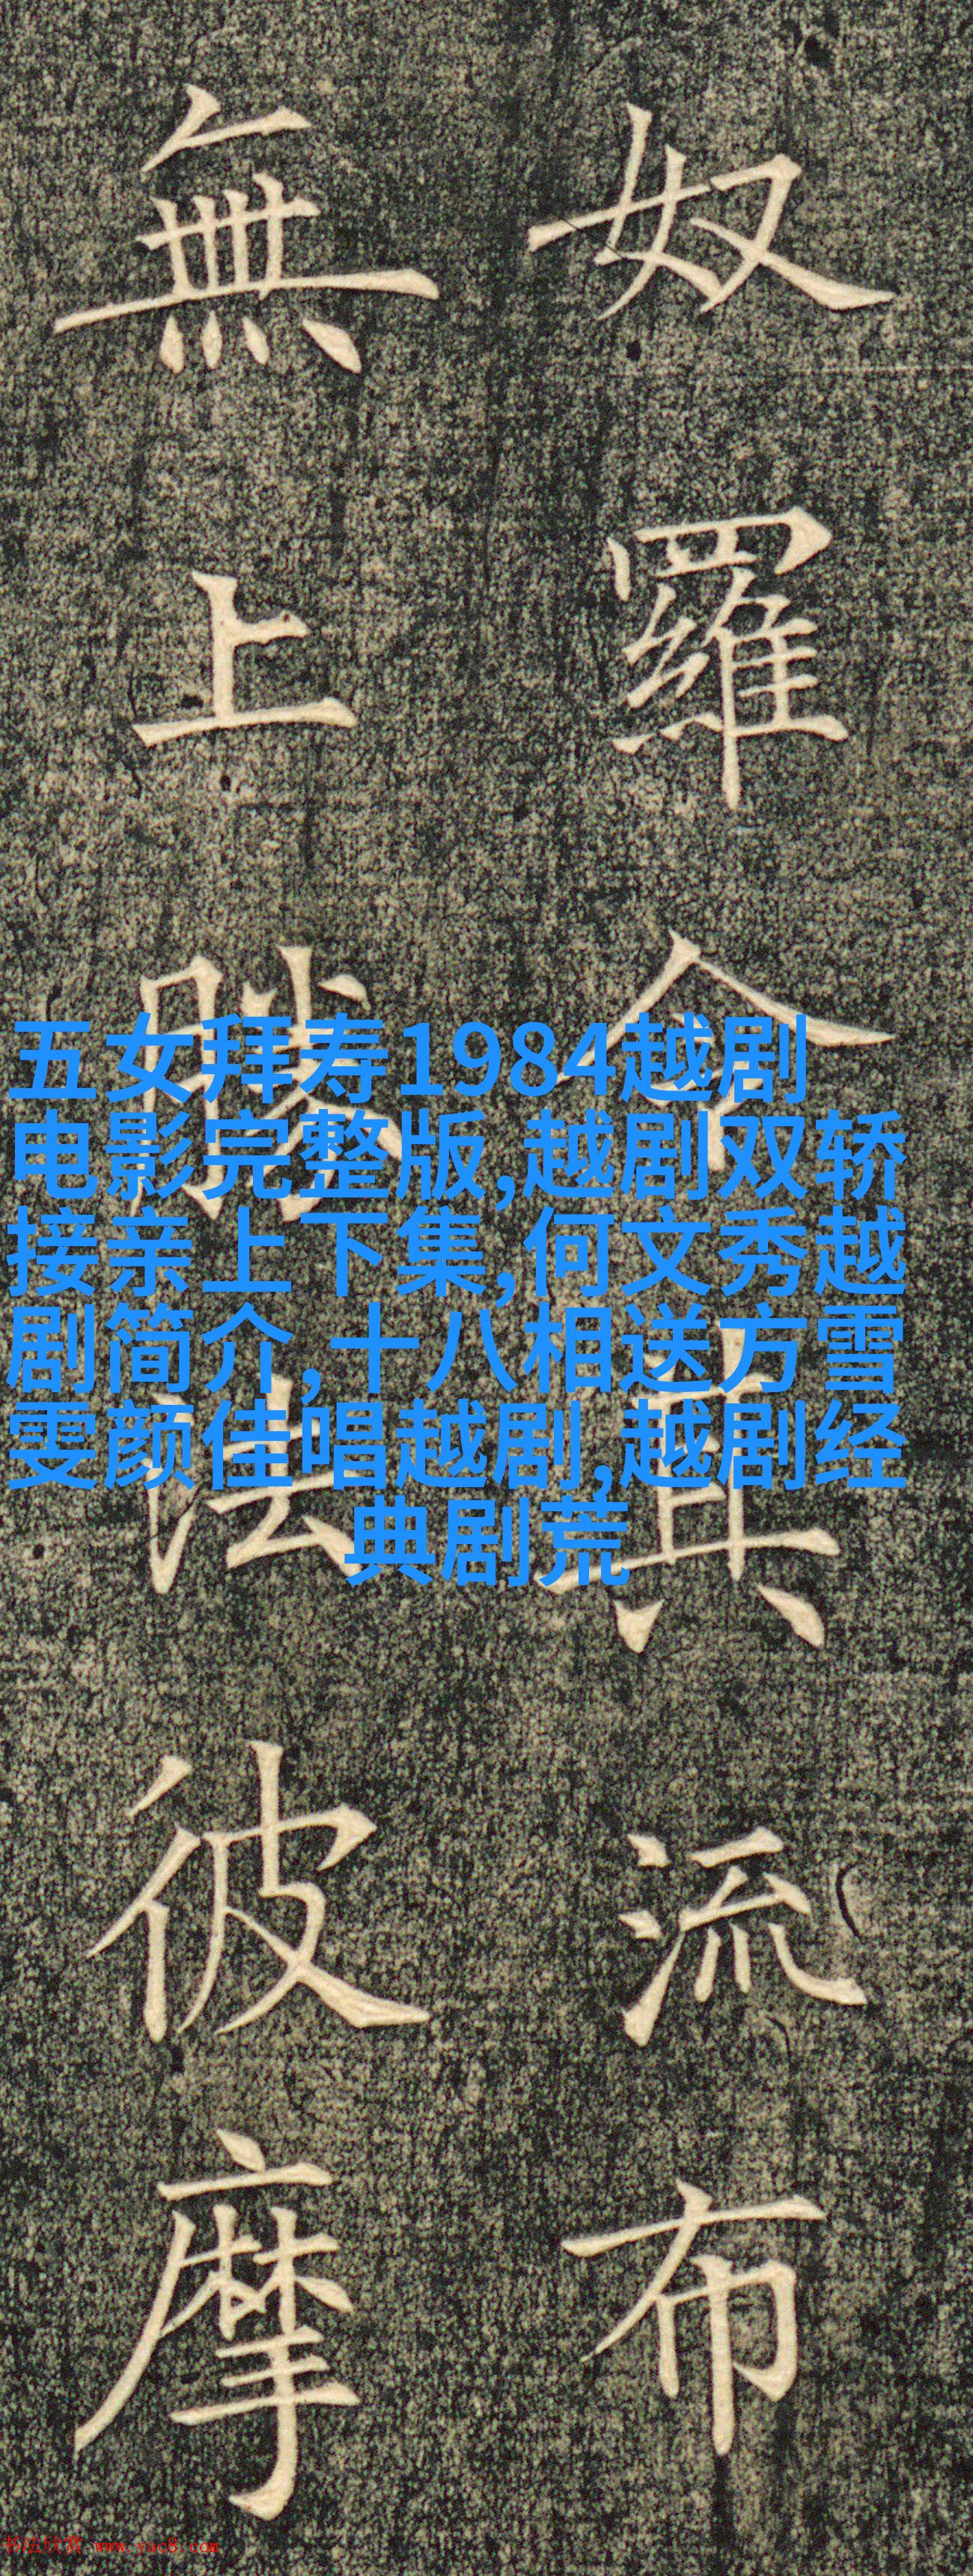 奴羅令流布
無上勝法彼摩
五女拜寿1984越剧
电影完整版,越剧双轿
接亲上下集,何文秀越
剧简介,十八相送方雪
雯颜佳唱越剧,越剧经
典剧荒
书法欣赏 www.yac8.com